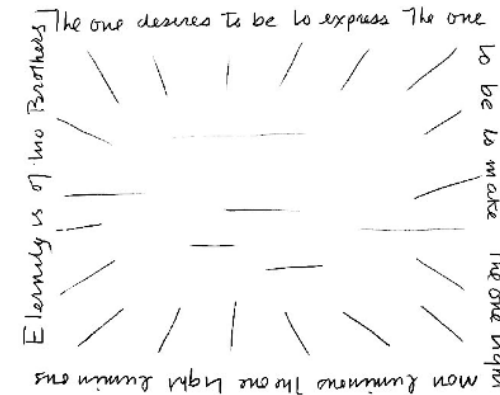 The one desires to be to express The one
to be to make The one light
luminous The one light luminous
Eternity is of two Brothers